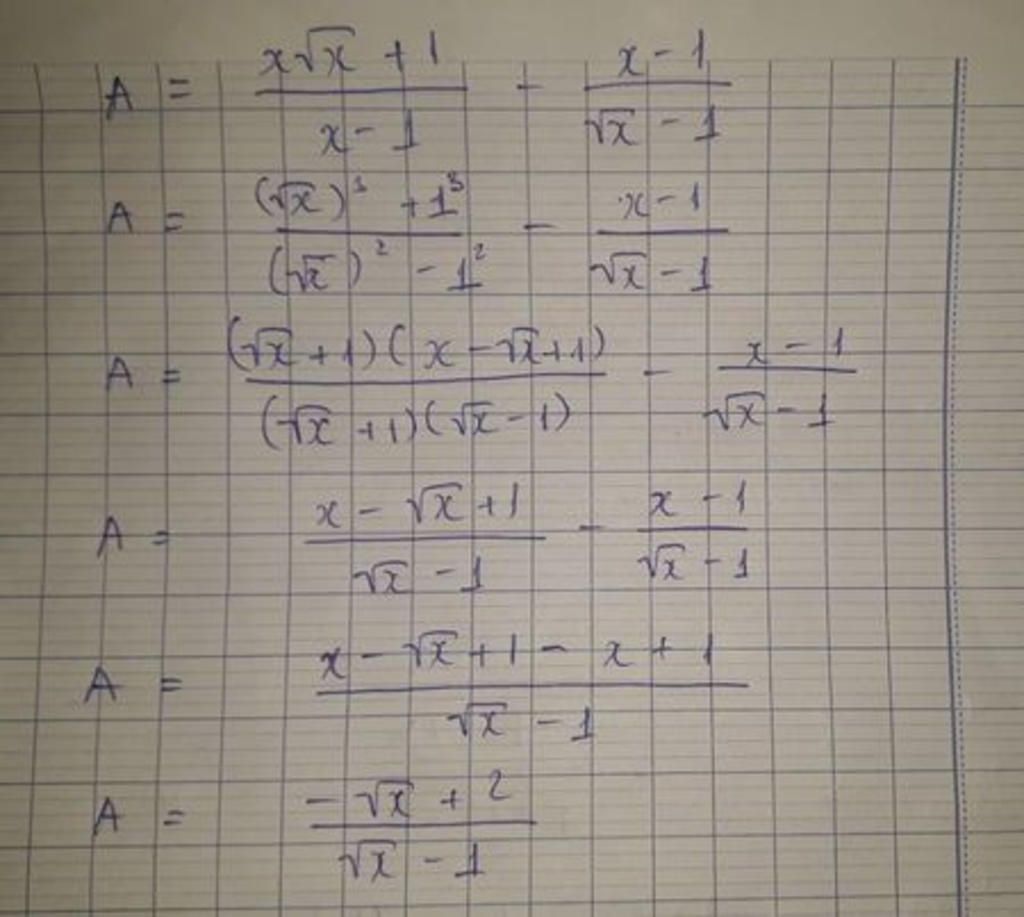 A = \frac{x\sqrt{x} + 1}{x - 1} - \frac{x - 1}{\sqrt{x} - 1}
A = \frac{(\sqrt{x})^3 + 1^3}{(\sqrt{x})^2 - 1^2} - \frac{x - 1}{\sqrt{x} - 1}
A = \frac{(\sqrt{x} + 1)(x - \sqrt{x} + 1)}{(\sqrt{x} + 1)(\sqrt{x} - 1)} - \frac{x - 1}{\sqrt{x} - 1}
A = \frac{x - \sqrt{x} + 1}{\sqrt{x} - 1} - \frac{x - 1}{\sqrt{x} - 1}
A = \frac{x - \sqrt{x} + 1 - x + 1}{\sqrt{x} - 1}
A = \frac{-\sqrt{x} + 2}{\sqrt{x} - 1}